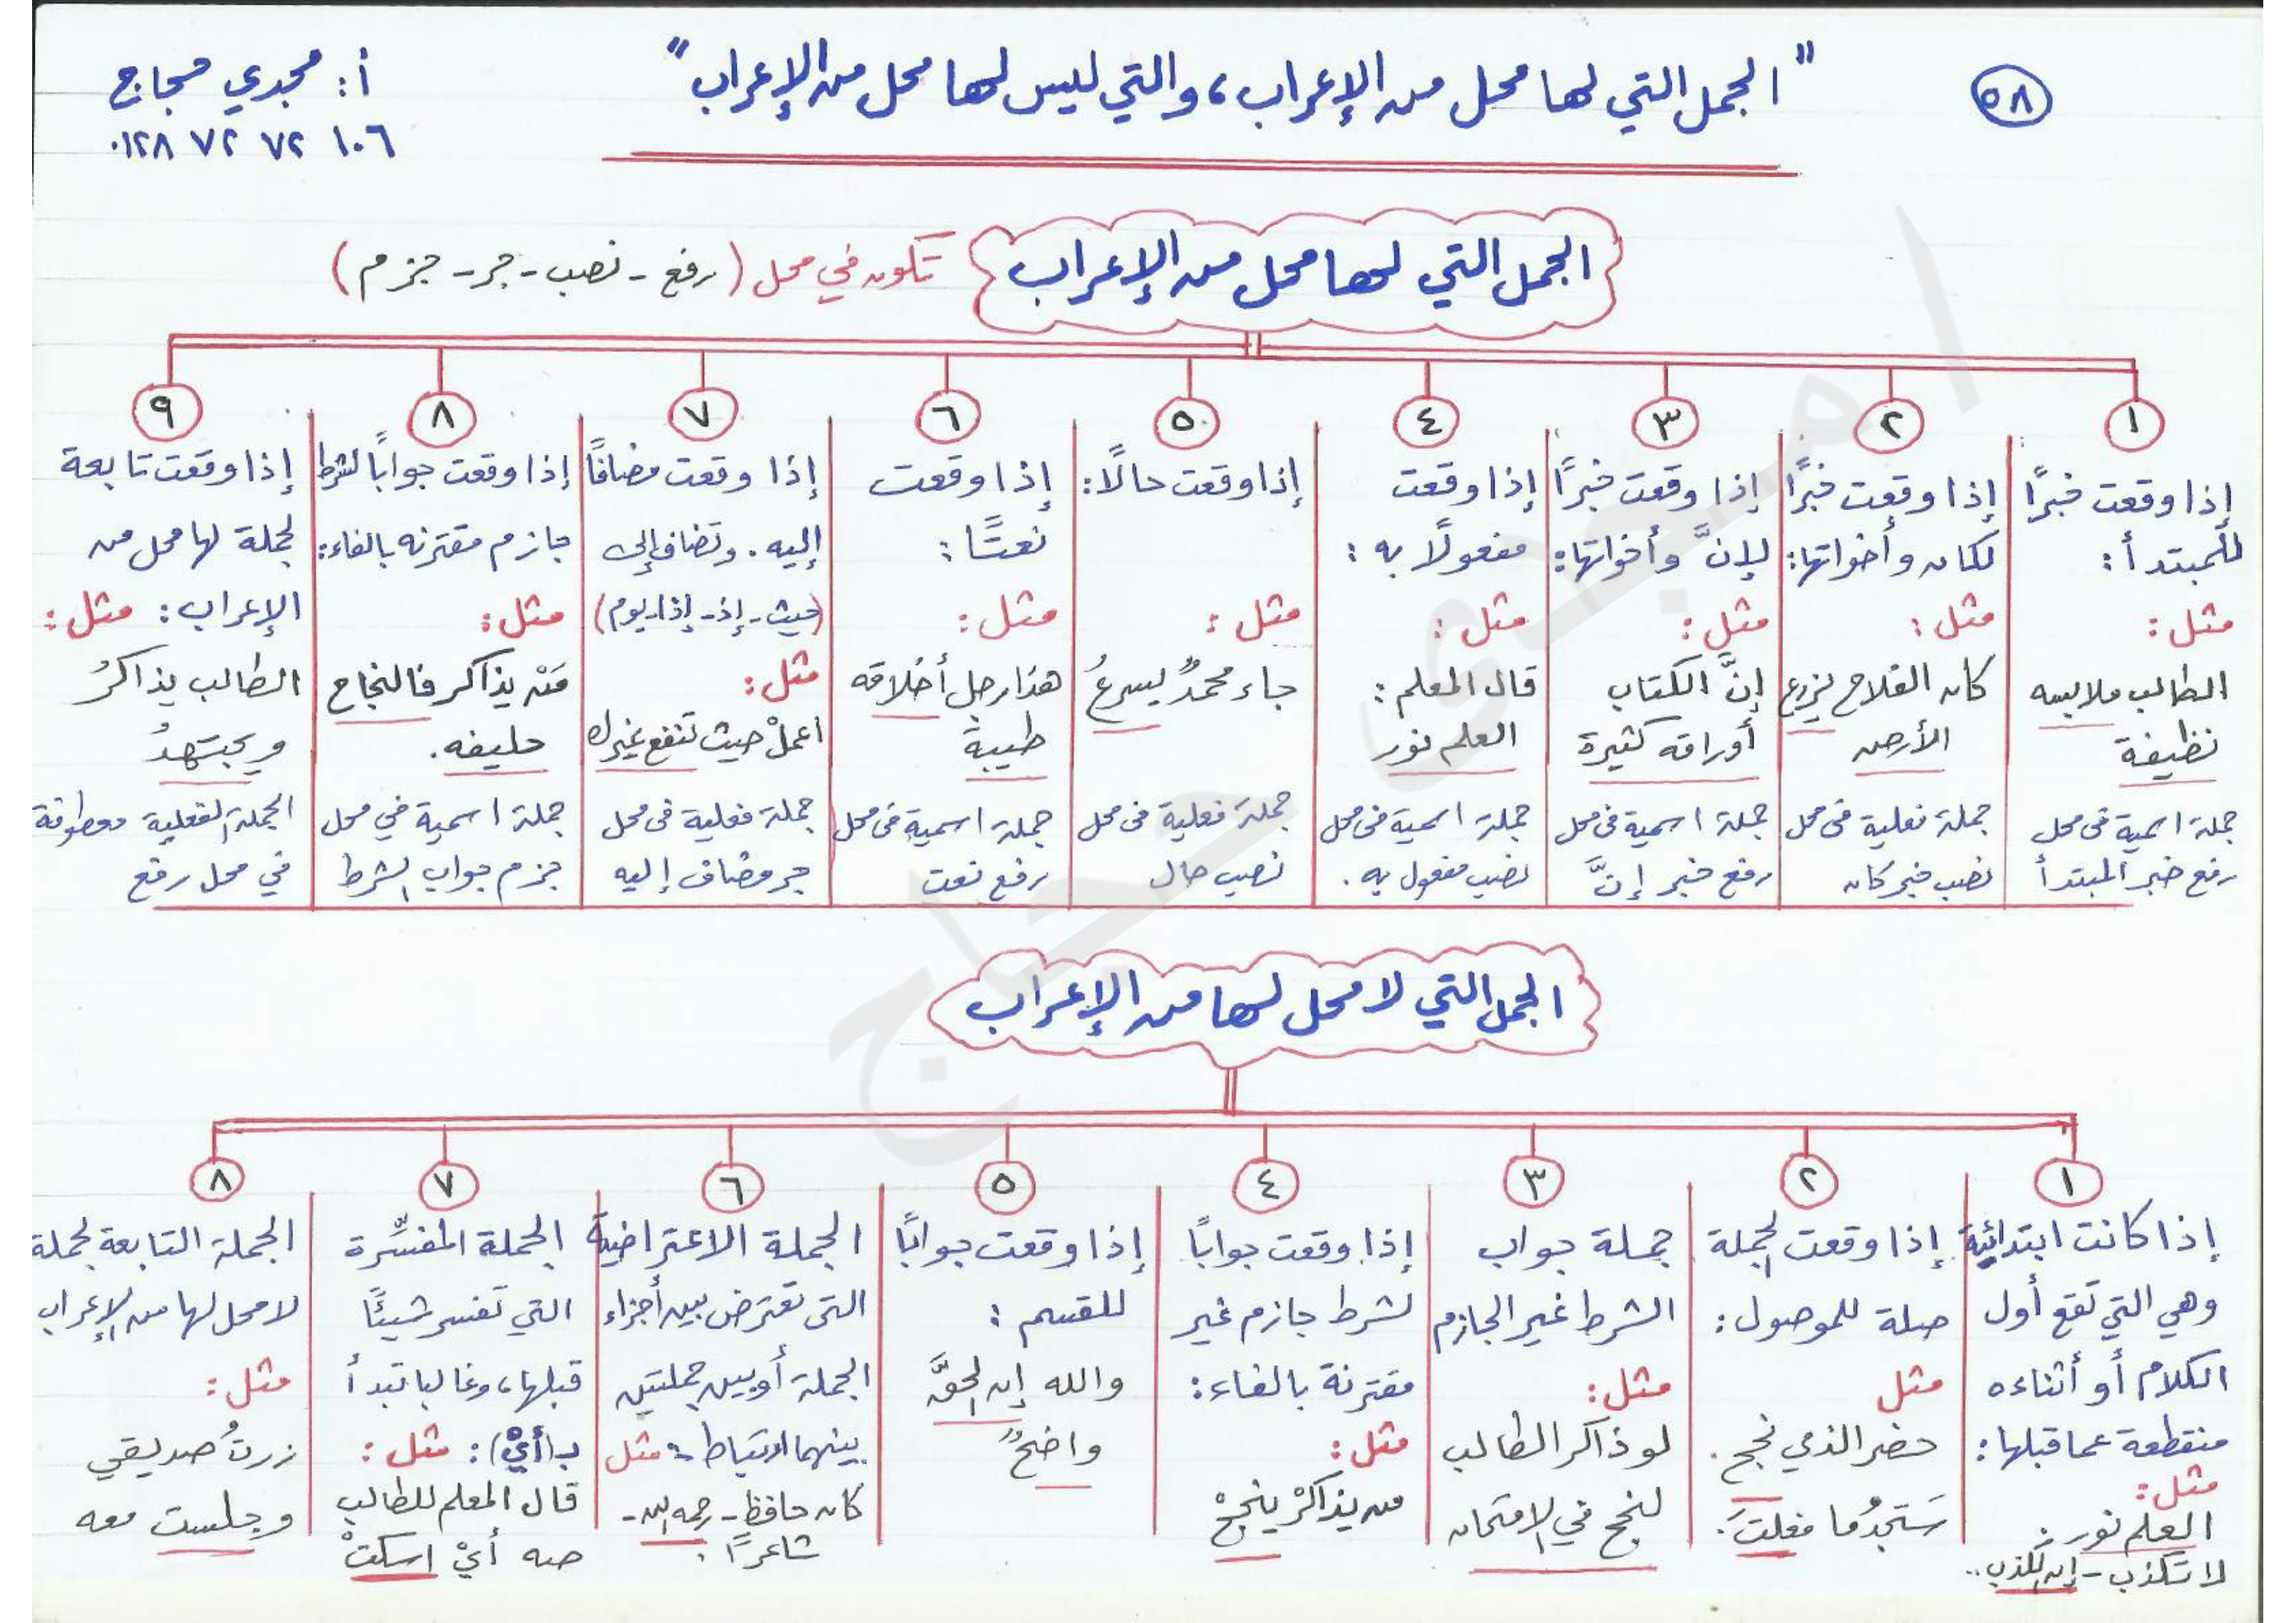 ٥٨
"الجمل التي لها محل من الإعراب، والتي ليس لها محل من الإعراب"
أ: مجدي حجاج
٠١٢٨ ٧٢ ٧٢ ١٠٦
الجمل التي لها محل من الإعراب
تكون في محل (رفع - نصب - جر - جزم)
١
إذا وقعت خبرًا
للمبتدأ:
مثل:
الطالب ملابسه
نظيفة
جملة اسمية فى محل
رفع خبر المبتدأ
٢
إذا وقعت خبرًا
لكان وأخواتها:
مثل:
كان الفلاح يزرع
الأرض
جملة فعلية فى محل
نصب خبر كان
٣
إذا وقعت خبرًا
لإنَّ وأخواتها:
مثل:
إنَّ الكتاب
أوراقه كثيرة
جملة اسمية فى محل
رفع خبر إنَّ
٤
إذا وقعت
مفعولًا به:
مثل:
قال المعلم:
العلم نور
جملة اسمية فى محل
نصب مفعول به.
٥
إذا وقعت حالًا:
مثل:
جاء محمدٌ يسرعُ
جملة فعلية فى محل
نصب حال
٦
إذا وقعت
نعتًا:
مثل:
هذا رجل أخلاقه
طيبة
جملة اسمية فى محل
رفع نعت
٧
إذا وقعت مضافًا
إليه. وتضاف إلى
(حيث - إذ - إذا - يوم)
مثل:
اعملْ حيث تنفع غيرك
جملة فعلية فى محل
جر مضاف إليه
٨
إذا وقعت جوابًا لشرط
جازم مقترنه بالفاء:
مثل:
مَنْ يذاكر فالنجاح
حليفه.
جملة اسمية في محل
جزم جواب الشرط
٩
إذا وقعت تابعة
لجملة لها محل من
الإعراب: مثل:
الطالب يذاكرُ
ويجتهدُ
الجملة الفعلية معطوفة
في محل رفع
الجمل التي لا محل لها من الإعراب
١
إذا كانت ابتدائية
وهي التي تقع أول
الكلام أو أثناءه
منقطعة عما قبلها:
مثل:
العلم نور.
لا تكذب - إن الكذب..
٢
إذا وقعت الجملة
صلة للموصول:
مثل
حضر الذي نجح.
ستجدُ ما فعلتَ.
٣
جملة جواب
الشرط غير الجازم
مثل:
لو ذاكر الطالب
لنجح في الامتحان
٤
إذا وقعت جوابًا
لشرط جازم غير
مقترنة بالفاء:
مثل:
من يذاكرْ ينجحْ
٥
إذا وقعت جوابًا
للقسم:
والله إن الحقَّ
واضحٌ
٦
الجملة الاعتراضية
التى تعترض بين أجزاء
الجملة أو بين جملتين
بينهما ارتباط: مثل
كان حافظ - رحمه الله -
شاعرًا.
٧
الجملة المفسِّرة
التي تفسر شيئًا
قبلها، وغالبا تبدأ
بـ(أيْ): مثل:
قال المعلم للطالب
صه أيْ اسكتْ
٨
الجملة التابعة لجملة
لا محل لها من الإعراب
مثل:
زرتُ صديقي
وجلست معه
أ مجدى حجاج